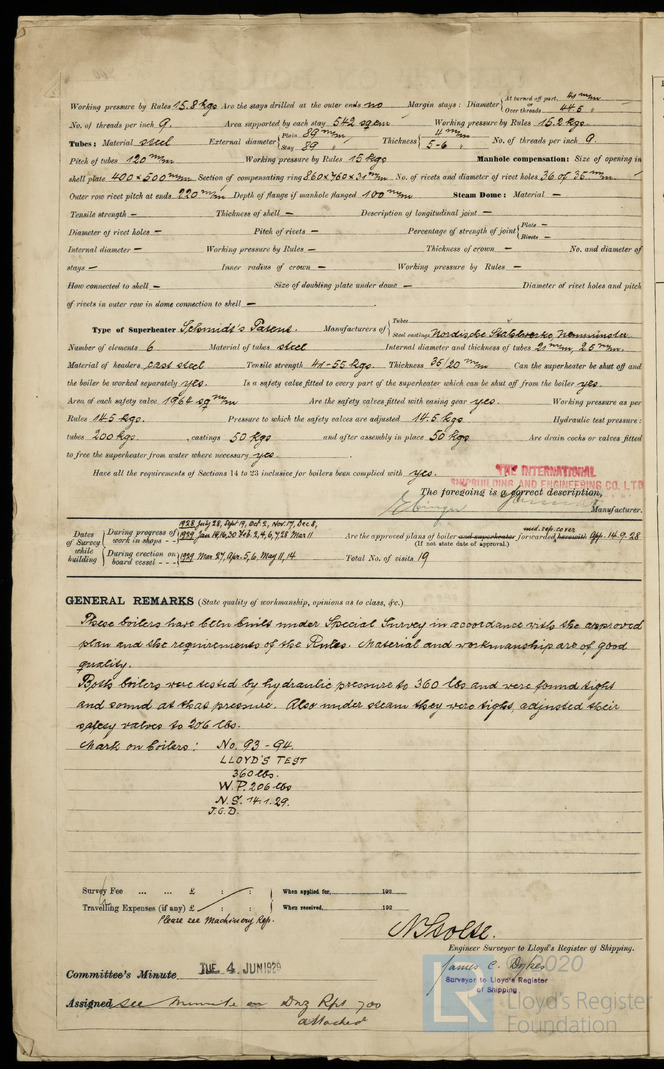 Working pressure by Rules 15.8 kgs Are the stays drilled at the outer ends no Margin stays: Diameter { At turned off part, or Over threads 44.5 "
No. of threads per inch 9. Area supported by each stay 542 sq cm Working pressure by Rules 15.2 kgs.
Tubes: Material steel External diameter { Plain 89 m/m Stay 89 " Thickness { 4 m/m 5-6 " No. of threads per inch 9.
Pitch of tubes 120 m/m Working pressure by Rules 15 kgs Manhole compensation: Size of opening in
shell plate 400 x 500 m/m Section of compensating ring 860 x 760 x 31 m/m No. of rivets and diameter of rivet holes 36 of 35 m/m.
Outer row rivet pitch at ends 220 m/m Depth of flange if manhole flanged 100 m/m Steam Dome: Material -
Tensile strength - Thickness of shell - Description of longitudinal joint -
Diameter of rivet holes - Pitch of rivets - Percentage of strength of joint { Plate - Rivets -
Internal diameter - Working pressure by Rules - Thickness of crown - No. and diameter of
stays - Inner radius of crown - Working pressure by Rules -
How connected to shell - Size of doubling plate under dome - Diameter of rivet holes and pitch
of rivets in outer row in dome connection to shell -
Type of Superheater Schmidt's Patent. Manufacturers of { Tubes Steel castings Nordische Stahlwerke Neumünster
Number of elements 6 Material of tubes steel Internal diameter and thickness of tubes 21 m/m, 2.5 m/m.
Material of headers cast steel Tensile strength 44-55 kgs. Thickness 35/20 m/m Can the superheater be shut off and
the boiler be worked separately yes. Is a safety valve fitted to every part of the superheater which can be shut off from the boiler yes.
Area of each safety valve 1964 sq m/m Are the safety valves fitted with easing gear yes. Working pressure as per
Rules 14.5 kgs. Pressure to which the safety valves are adjusted 14.5 kgs. Hydraulic test pressure:
tubes 200 kgs. , castings 50 kgs and after assembly in place 50 kgs. Are drain cocks or valves fitted
to free the superheater from water where necessary yes.
Have all the requirements of Sections 14 to 23 inclusive for boilers been complied with yes.
THE INTERNATIONAL
SHIPBUILDING AND ENGINEERING CO. LTD
The foregoing is a correct description,
Manufacturer.
Dates of Survey while building { During progress of work in shops - - 1928 July 28, Sept 19, Oct 2, Nov 17, Dec 8, 1929 Jan 14, 16, 30 Feb 2, 4, 6, 7, 28 Mar 11
Are the approved plans of boiler and superheater forwarded herewith App. 14.9.28
(If not state date of approval.)
During erection on board vessel - - - 1929 Mar 27, Apr. 5, 6, May 11, 14 Total No. of visits 19
GENERAL REMARKS (State quality of workmanship, opinions as to class, &c.)
These boilers have been built under Special Survey in accordance with the approved
plan and the requirements of the Rules. Material and workmanship are of good
quality.
Both boilers were tested by hydraulic pressure to 360 lbs and were found tight
and sound at that pressure. Also under steam they were tight, adjusted their
safety valves to 206 lbs.
Mark on boilers: No. 93 - 94.
LLOYD'S TEST
360 lbs.
W.P. 206 lbs
N.S. 14.1.29.
J.C.D.
Survey Fee ... ... £ : : When applied for, 192
Travelling Expenses (if any) £ : : When received, 192
Please see Machinery Rep.
N Stolte.
Engineer Surveyor to Lloyd's Register of Shipping.
James C. Dykes
Surveyor to Lloyd's Register
of Shipping.
Committee's Minute TUE. 4 JUN 1929
Assigned see minute on Dnz Rpt 700
attached
©2020
LR
Lloyd's Register
Foundation